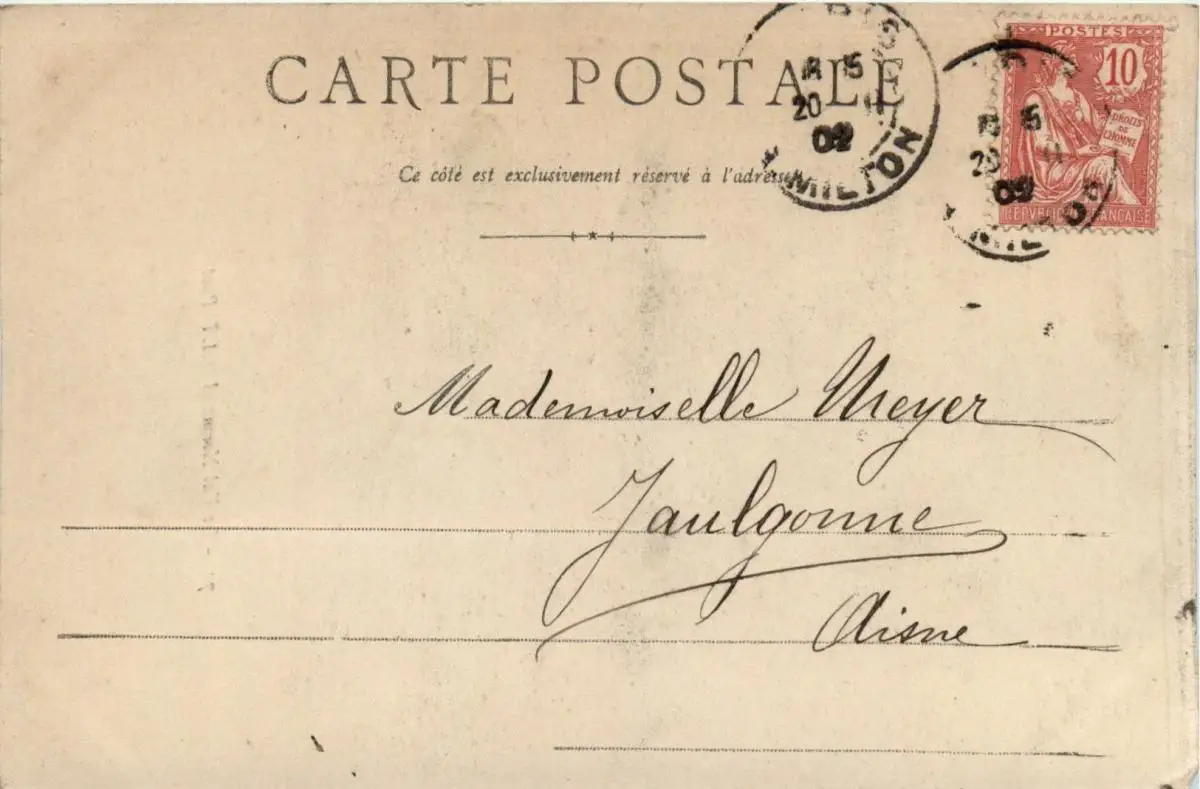 CARTE POSTALE
Ce côté est exclusivement réservé à l'adresse
POSTES
10
DROITS
DE
L'HOMME
REPVBLIQUE FRANÇAISE
15
20 11
02
15
20 11
02
Mademoiselle Meyer
Jaulgonne
Aisne